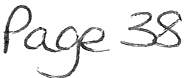 Page 38